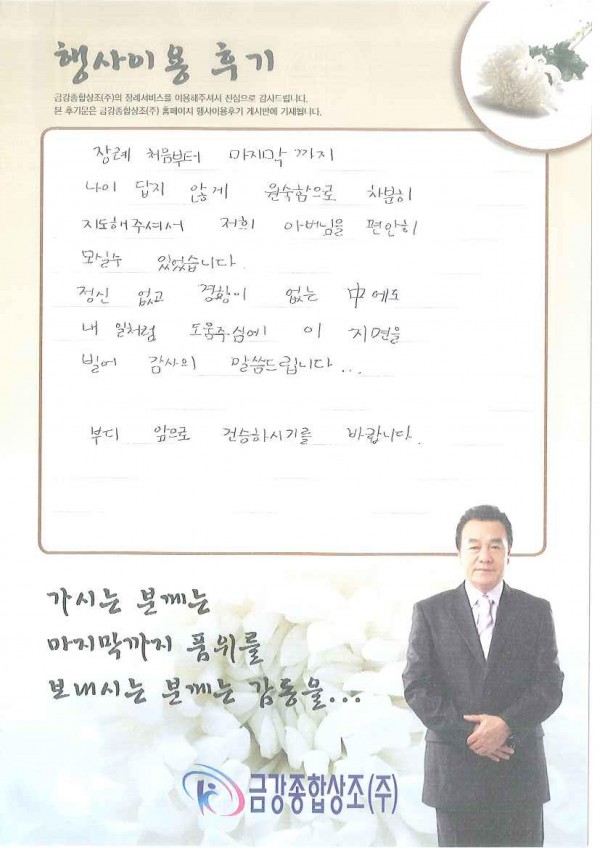 행사이용 후기
금강종합상조(주)의 장례서비스를 이용해주셔서 진심으로 감사드립니다.
본 후기문은 금강종합상조(주) 홈페이지 행사이용후기 게시판에 기재됩니다.
장례 처음부터 마지막 까지
나이 답지 않게 원숙함으로 차분히
지도해주셔서 저희 아버님을 편안히
모실수 있었습니다.
정신 없고 경황이 없는 中에도
내 일처럼 도움주심에 이 지면을
빌어 감사의 말씀드립니다...
부디 앞으로 건승하시기를 바랍니다.
가시는 분께는
마지막까지 품위를
보내시는 분께는 감동을...
금강종합상조(주)